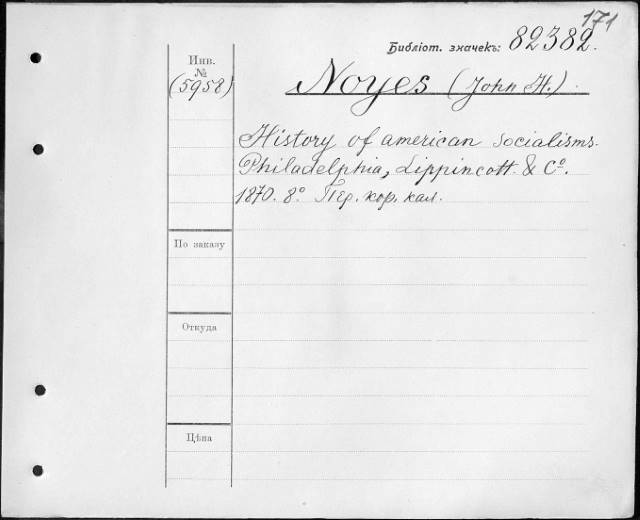 171
Библіот. значекъ: 82382.
Инв.
№
(5958)
Noyes (John H.)
History of american socialisms.
Philadelphia, Lippincott & Cº.
1870. 8º Пер. кор. кал.
По заказу
Откуда
Цѣна